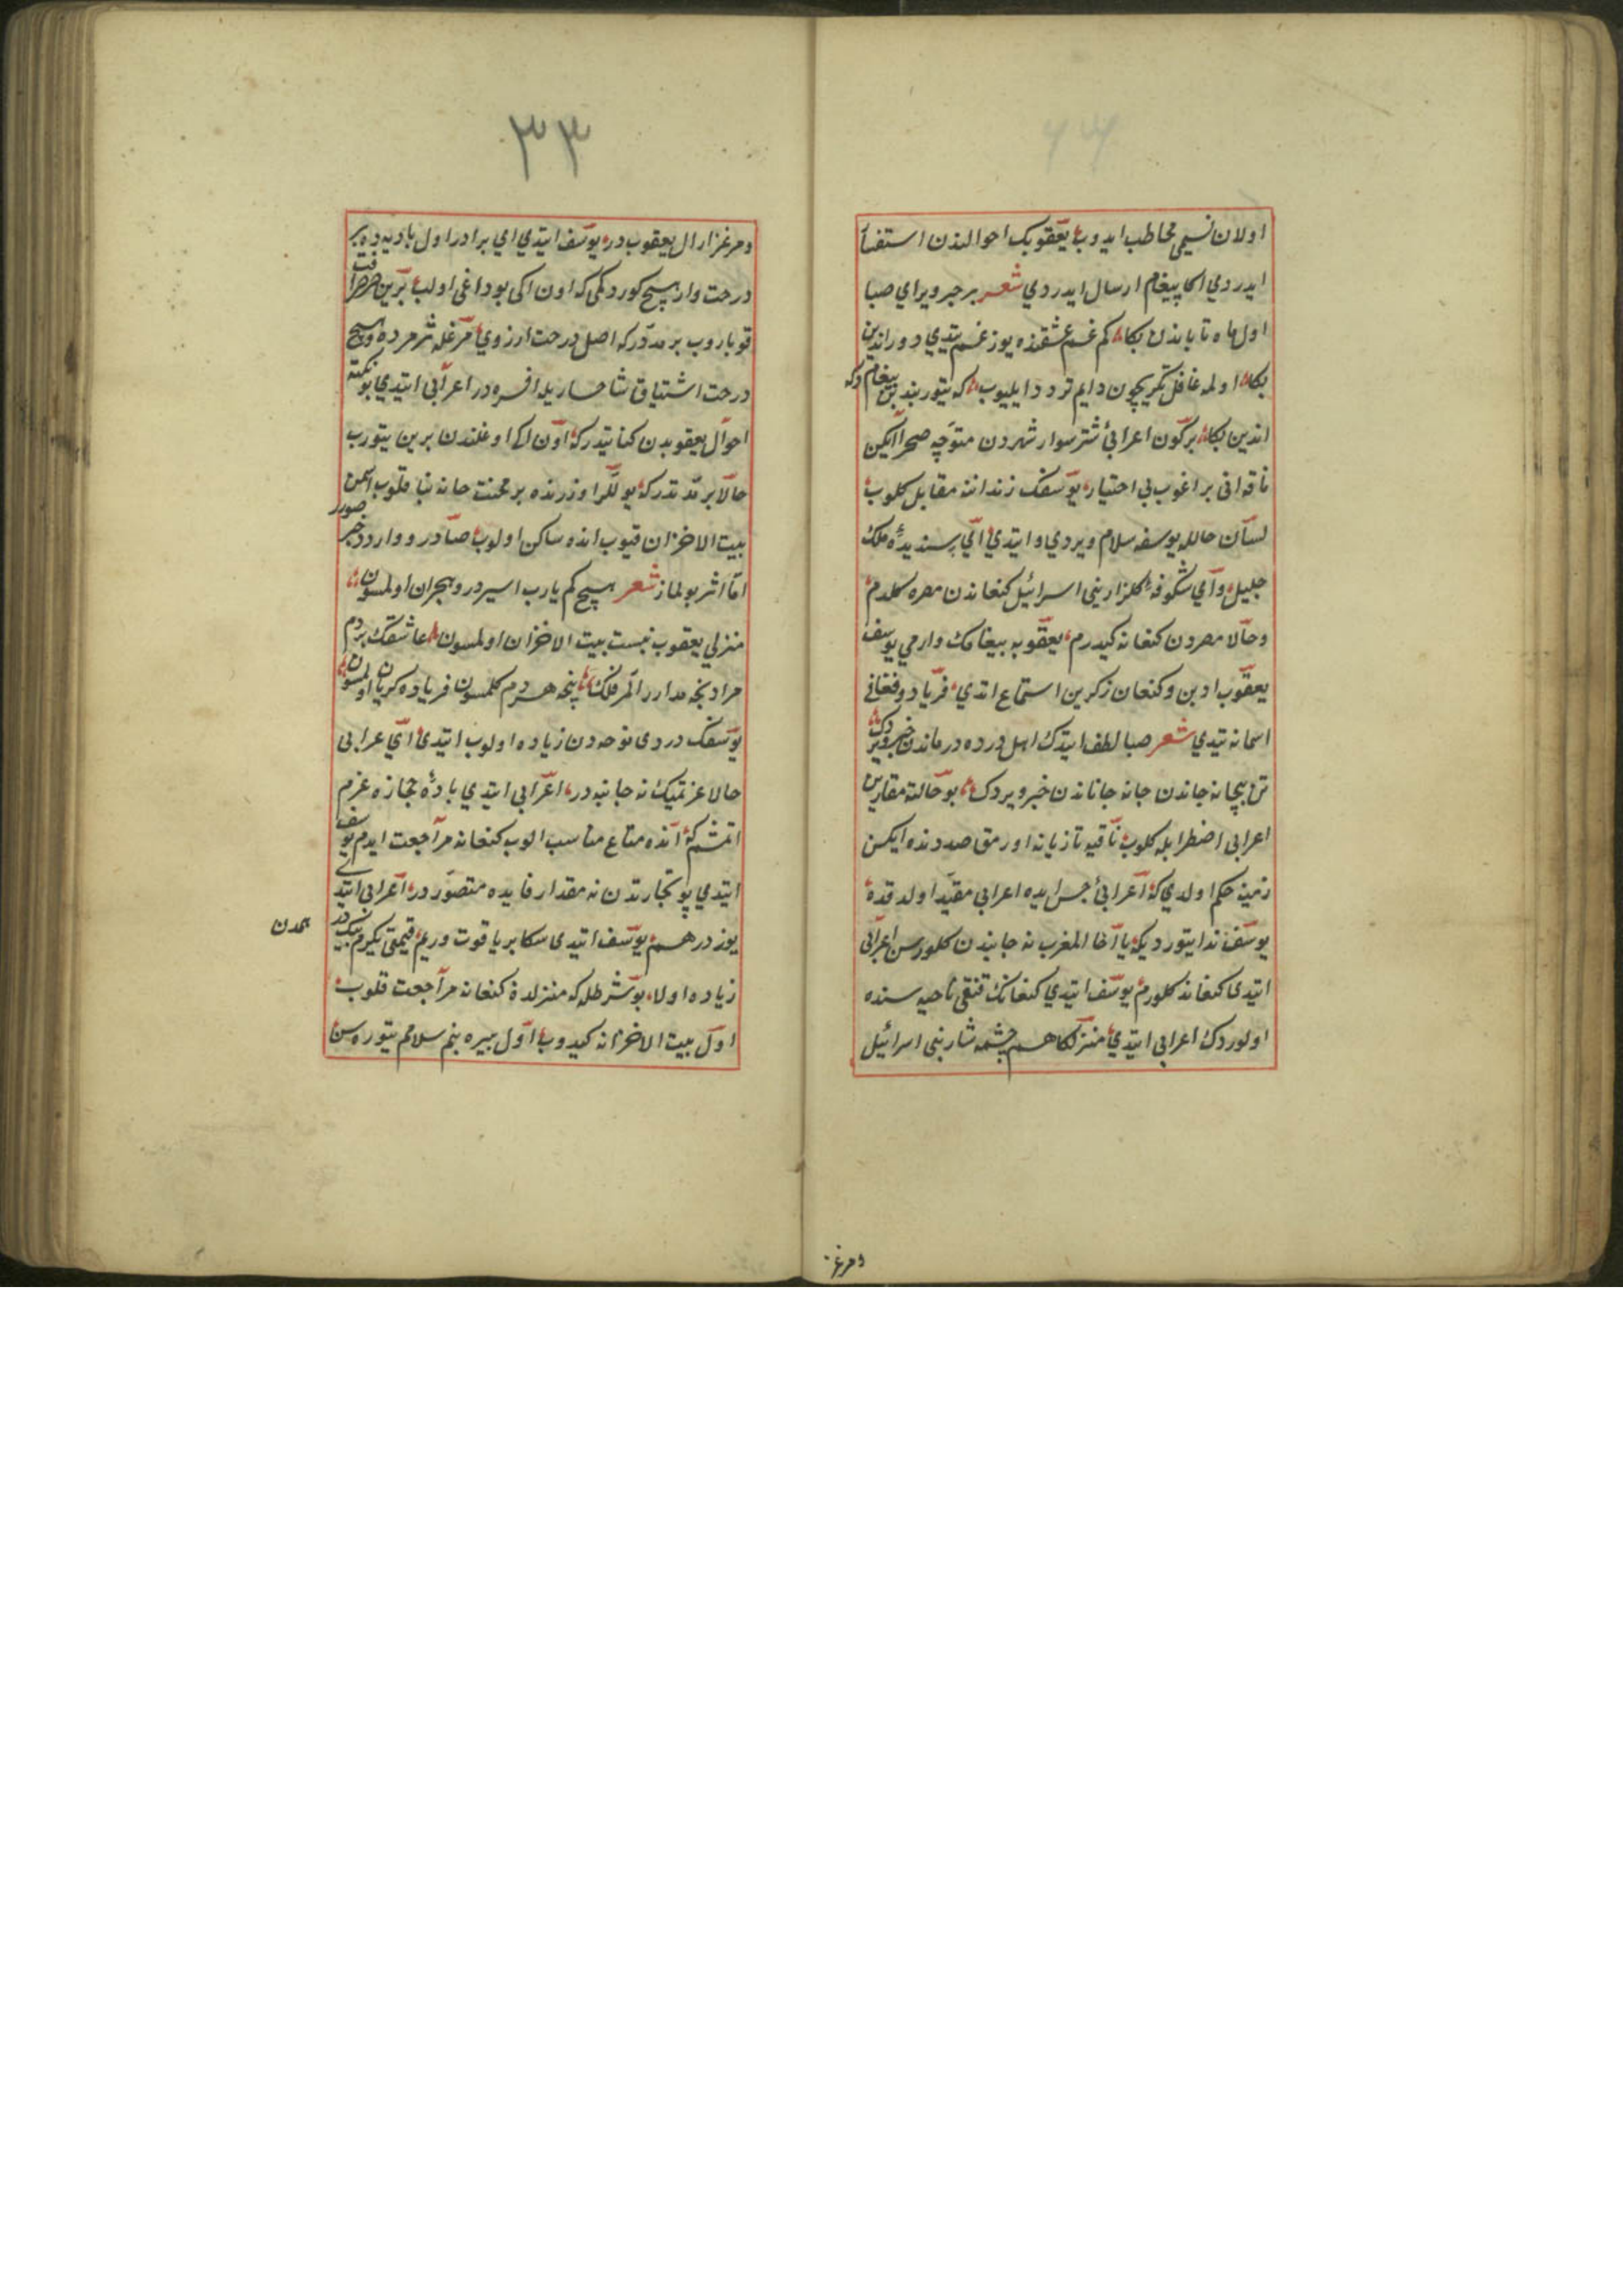 اولان نسیمی مخاطب ایدوب یعقوبک احوالندن استفسار
ایدردی اکا پیغام ارسال ایدردی شعر بر خبر ویر ای صبا
اول ماه تاباندن بکا کم غم عشقنده یوز غم یتدی دوراندین
بکا اولمه غافل تکریچون دایم تردد ایلیوب که یتور بندین پیغام که
اندین بکا برکون اعرابی شترسوار شهردن متوجه صحرا ایکن
ناقه انی براغوب بی اختیار یوسفک زنداننه مقابل کلوب
لسان حالله یوسفه سلام ویردی و ایتدی ای پسندیده ملک
جلیل و ای شکوفه کلزار بنی اسرائیل کنعاندن مصره کلدم
و حالا مصردن کنعانه کیدرم یعقوبه پیغامک وارمی یوسف
یعقوب ادین و کنعان ذکرین استماع اتدی فریاد و فغانی
اسمانه یتدی شعر صبا لطف ایتدک اهل درده درماندن خبر ویردک
تن بیجانه جاندن جانه جاناندن خبر ویردک بو حالته مقارن
اعرابی اضطرابله کلوب ناقیه تازیانه اورمق صددنده ایکن
زمینه حکم اولدی که اعرابئ حبس ایده اعرابی مقید اولدقده
یوسف ندا یتوردیکه یا اخا المغرب نه جانبدن کلورسن اعرابی
ایتدی کنعاندن کلورم یوسف ایتدی کنعانک قنقی ناحیه سنده
اولوردک اعرابی ایتدی منزلکاهم چشمه شار بنی اسرائیل
ومرغ
۳۳
و مرغزار ال یعقوبدر یوسف ایتدی ای برادر اول بادیه ده بر
درخت وار هیچ کوردکمی که اون ایکی بوداغی اولب برین صرصر افت
قوپاروب بر مدتدرکه اصل درخت ارزوی مرغله ثمر مرده و هیچ
درخت اشتیاق شاخساریله افسرده در اعرابی ایتدی بو نکته
احوال یعقوبدن کنایتدرکه اون ایکی اوغلندن برین یتورب
حالا بر مدتدرکه یوللر اوزرنده بر محنت خانه بنیا قلوب آدین
بیت الاحزان قیوب انده ساکن اولوب صادر و واردن خبر صورر
اما اثر بولماز شعر هیچ کم یارب اسیر درد هجران اولمسون
منزلی یعقوب نسبت بیت الاحزان اولمسون عاشقک بر دم
مرادنجه مدار ایلر فلک نیجه هردم کلمسون فریاده کریان اولمسون
یوسفک دردی نوحه دن زیاده اولوب ایتدی ای عرابی
حالا عزیمتک نه جانبه در اعرابی ایتدی بادیه حجازه عزم
اتمشم که انده متاع مناسب الوب کنعانه مراجعت ایدم یوسف
ایتدی بو تجارتدن نه مقدار فایده متصور در اعرابی ایتدی
یوز درهم یوسف ایتدی سکا بر یاقوت ویریم قیمتی یکرم بیک درهمدن
زیاده اولا بو شرطله که منزلدن کنعانه مراجعت قلوب
اول بیت الاحزانه کیدوب اول پیره بنم سلامم یتوره سن